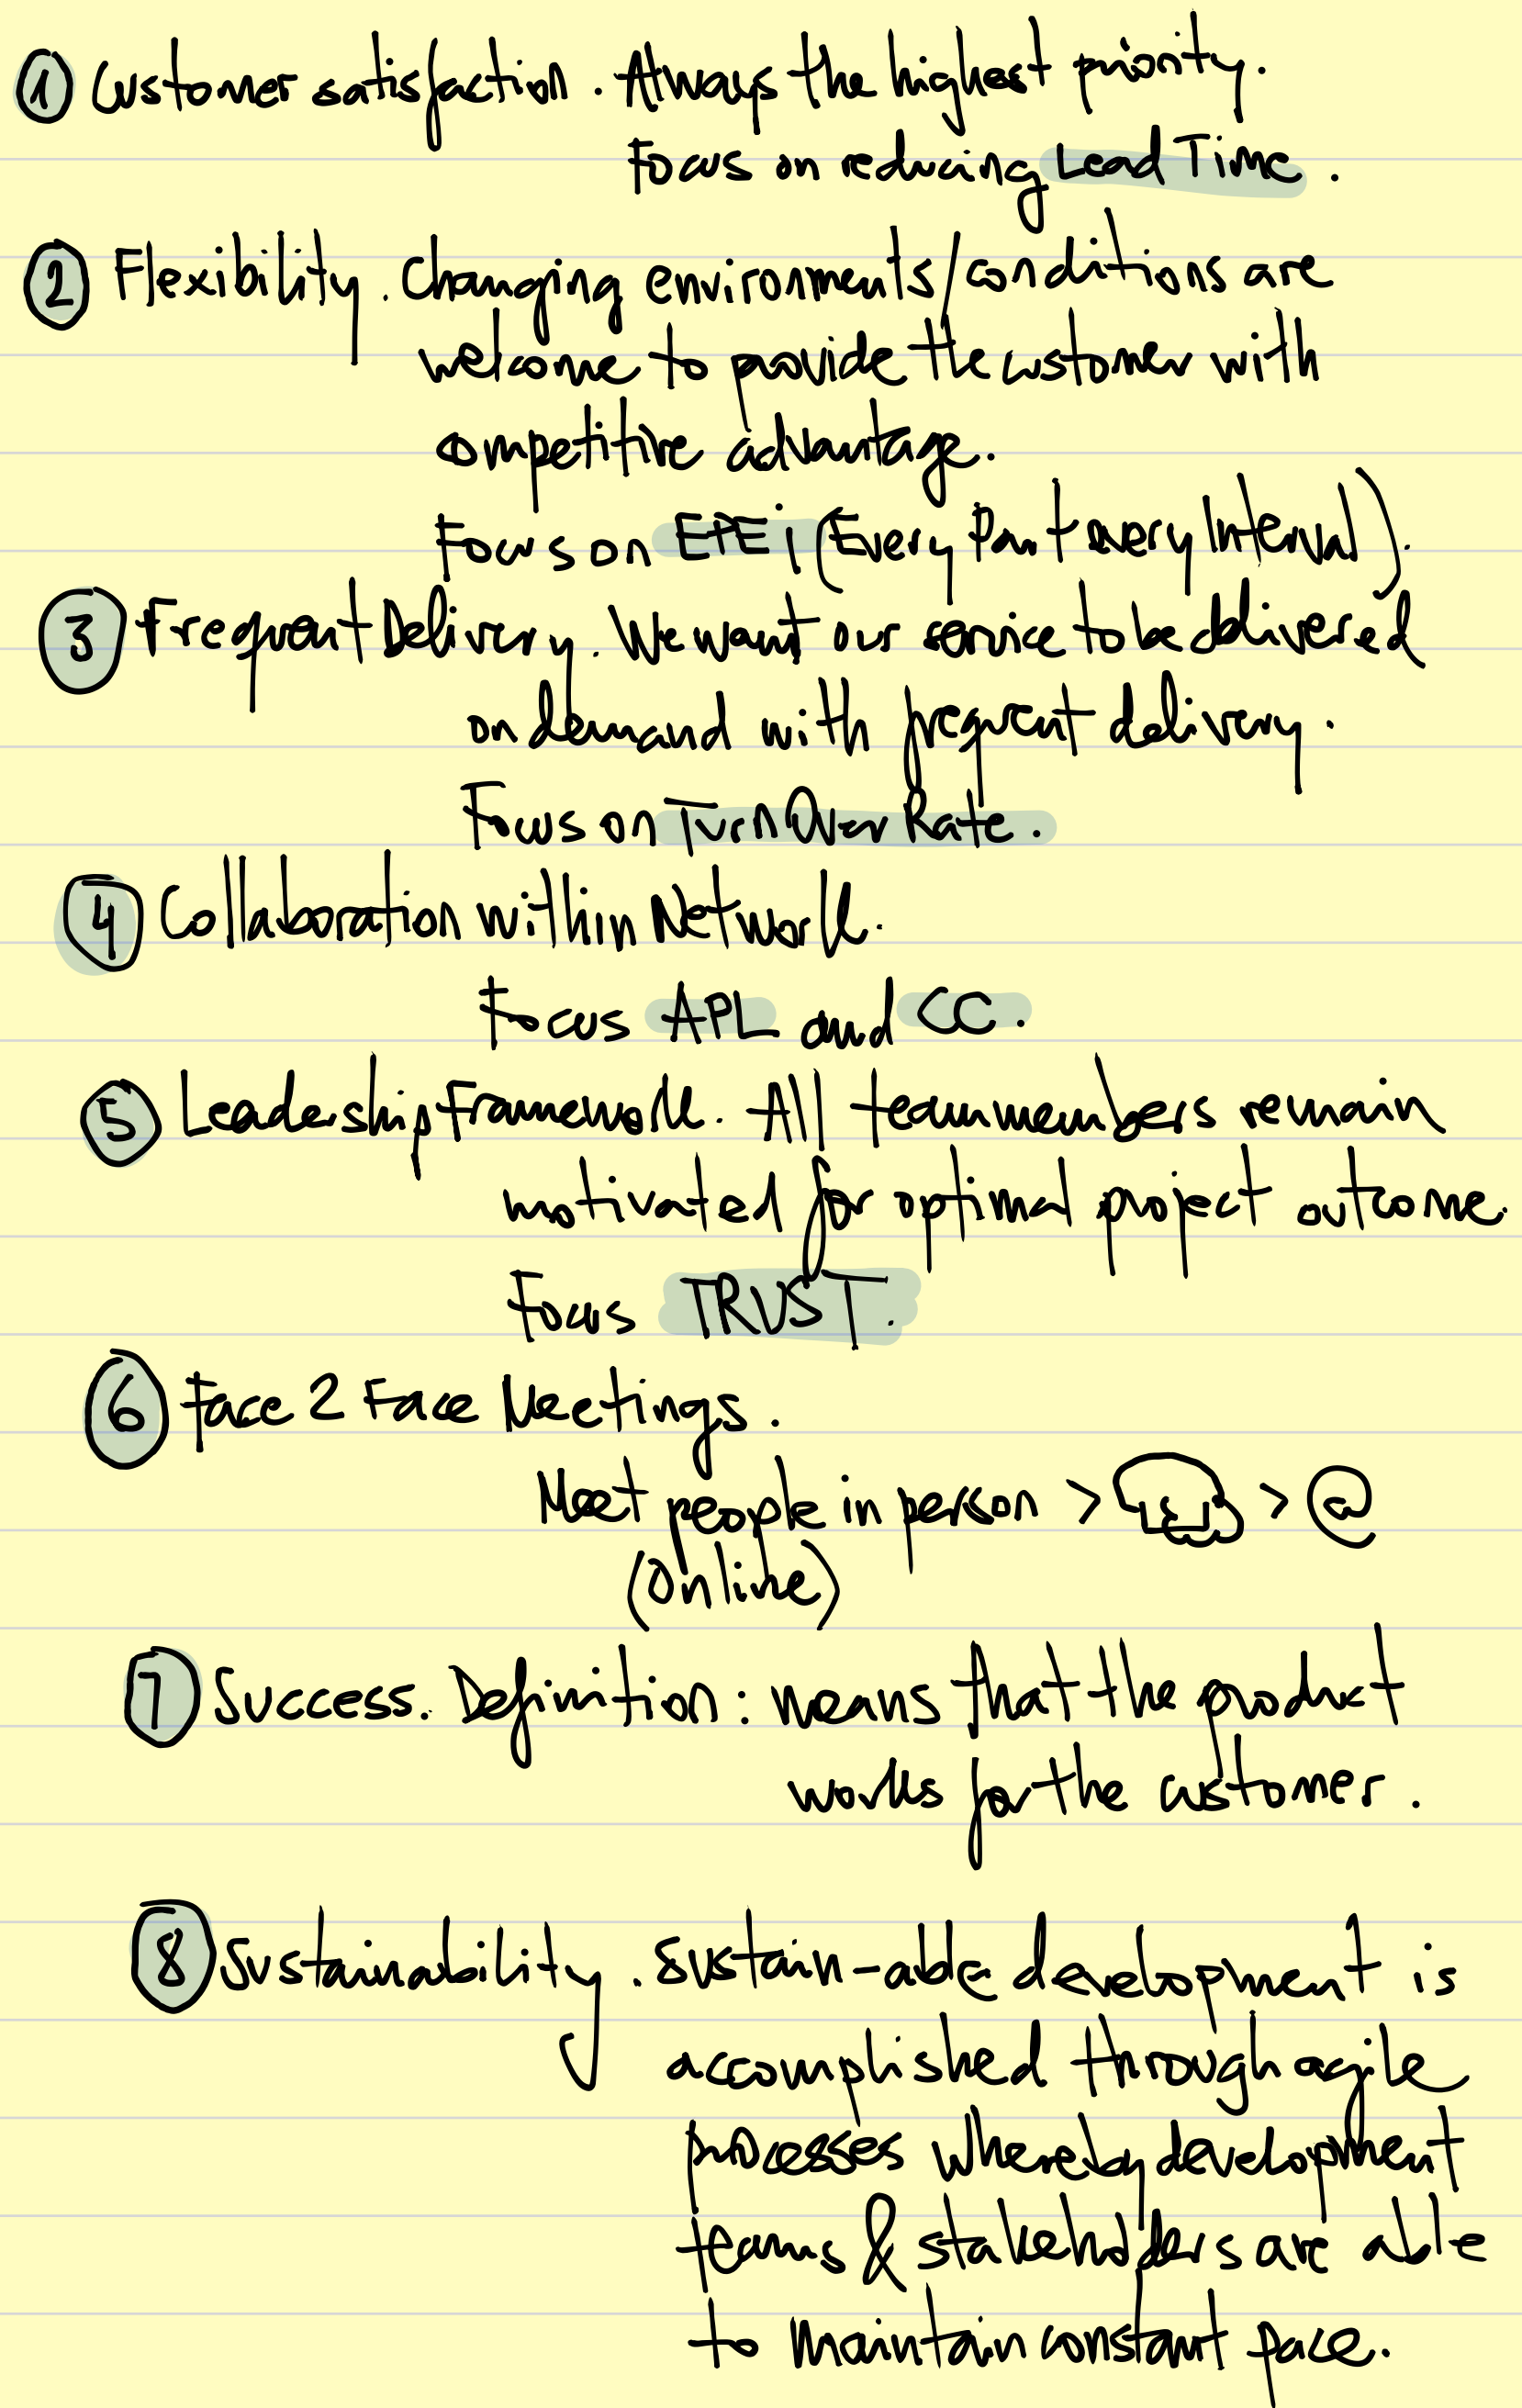 1 Customer satisfaction. Always the highest priority.
Focus on reducing Lead Time.
2 Flexibility. Changing environments/conditions are
welcome to provide the customer with
competitive advantage.
Focus on EPEi (Every Part Every Interval).
3 Frequent Delivery. We want our service to be delivered
on demand with frequent delivery.
Focus on TurnOver Rate.
4 Collaboration within Network.
Focus APL and CC.
5 Leadership Framework. All team members remain
motivated for optimal project outcome.
Focus TRUST.
6 Face 2 Face Meetings.
Meet people in person > > @
(online)
7 Success. Definition: means that the product
works for the customer.
8 Sustainability. Sustain-able development is
accomplished through agile
processes whereby development
teams & stakeholders are able
to maintain constant pace.